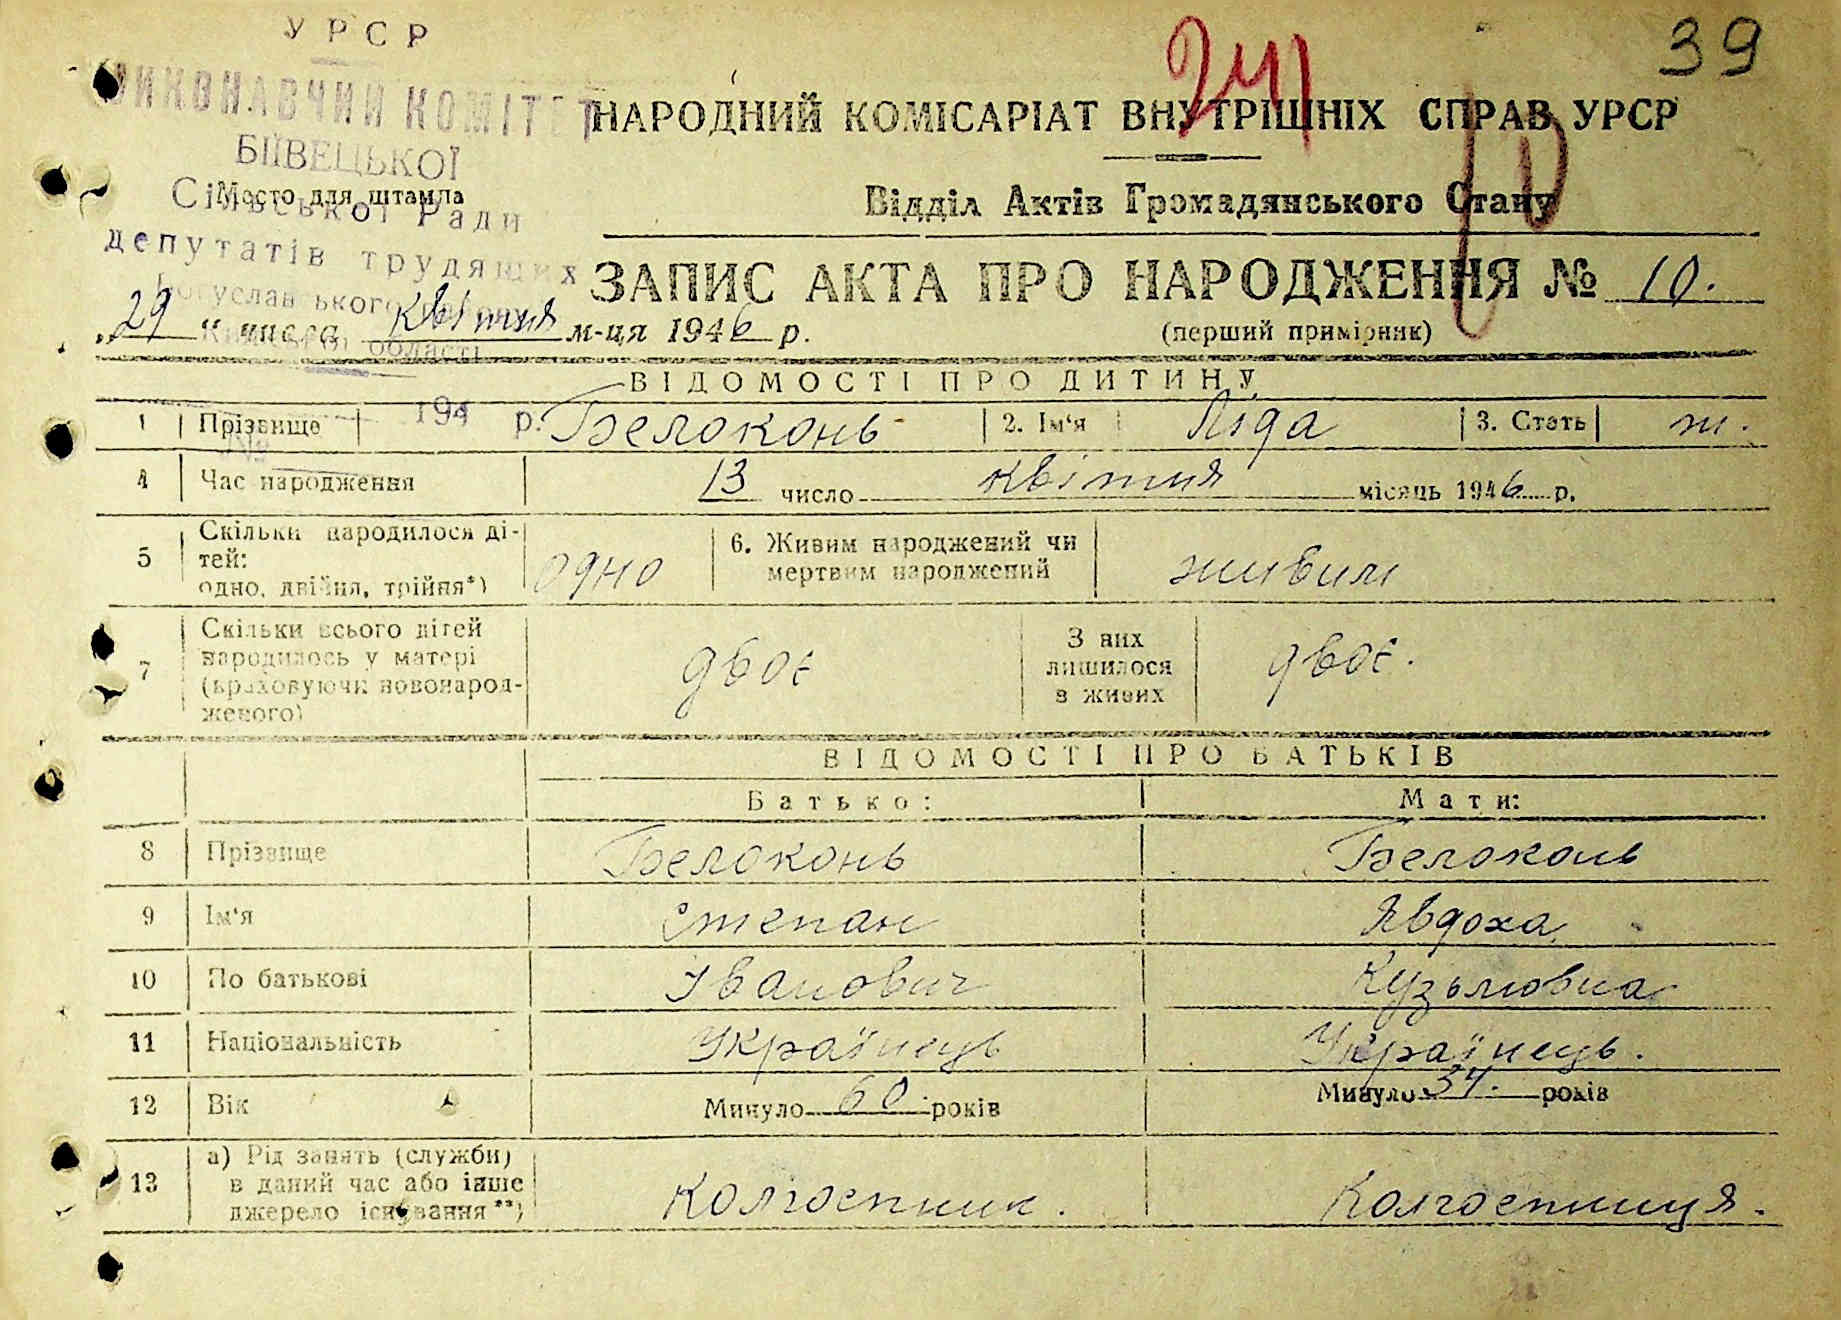 39
241
10
УРСР
ВИКОНАВЧИЙ КОМІТЕТ
БІЇВЕЦЬКОЇ
Сільської Ради
депутатів трудящих
Богуславського району
Київської області
194 р.
№
Место для штампа
НАРОДНИЙ КОМІСАРІАТ ВНУТРІШНІХ СПРАВ УРСР
Відділ Актів Громадянського Стану
ЗАПИС АКТА ПРО НАРОДЖЕННЯ № 10.
(перший примірник)
„29 “ числа квітня м-ця 1946 р.
ВІДОМОСТІ ПРО ДИТИНУ
1 Прізвище Белоконь 2. Ім‘я Ліда 3. Стать ж.
4 Час народження 13 число квітня місяць 1946 р.
5 Скільки народилося ді-
тей:
одно, двійня, трійня*) одно
6. Живим народжений чи
мертвим народжений живим
7 Скільки всього дітей
народилось у матері
(враховуючи новонарод-
женого) двоє
З них
лишилося
в живих двоє.
ВІДОМОСТІ ПРО БАТЬКІВ
Батько: Мати:
8 Прізвище Белоконь Белоконь
9 Ім‘я Степан Явдоха
10 По батькові Іванович Кузьмовна
11 Національність Українець Українець.
12 Вік Минуло 60 років Минуло 34. років
13 а) Рід занять (служби)
в даний час або інше
джерело існування**) Колгоспник. Колгоспниця.